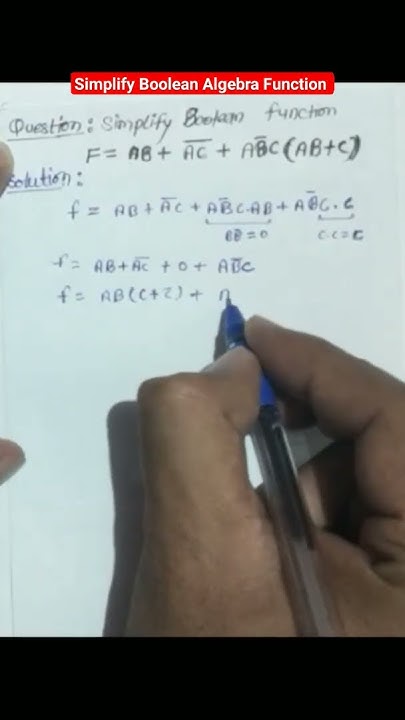 Simplify Boolean Algebra Function
Question: Simplify Boolean function
F = AB + \overline{AC} + A\overline{B}C(AB+C)
Solution:
f = AB + \overline{A}C + A\overline{B}C.AB + A\overline{B}C.C
B\overline{B} = 0 C.C = C
f = AB + \overline{AC} + 0 + A\overline{B}C
f = AB(C+\overline{C}) +